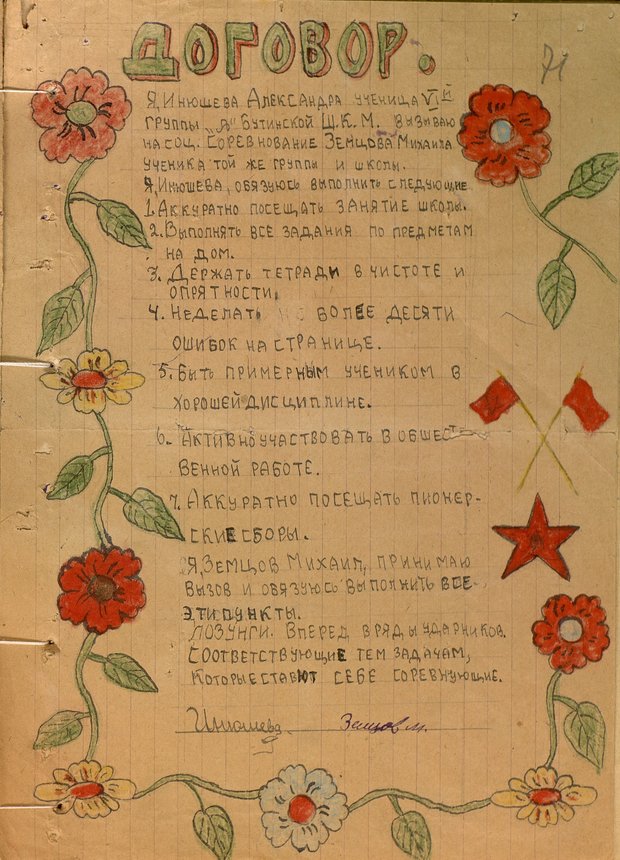 71
ДОГОВОР.
Я, Инюшева Александра ученица VIй
группы „А" Бутинской Ш.К.М. вызываю
на соц. соревнование Земцова Михаила
ученика той же группы и школы.
Я, Инюшева, обязуюсь выполнить следующие
1. Аккуратно посещать занятие школы.
2. Выполнять все задания по предметам
на дом.
3. Держать тетради в чистоте и
опрятности.
4. Неделать более десяти
ошибок на странице.
5. Быть примерным учеником в
хорошей дисциплине.
6. Активно участвовать в общест-
венной работе.
7. Аккуратно посещать пионер-
ские сборы.
Я, Земцов Михаил, принимаю
вызов и обязуюсь выполнить все
эти пункты.
Лозунги. Вперед в ряды ударников.
Соответствующие тем задачам,
которые ставют себе соревнующие.
Инюшева. Земцов М.